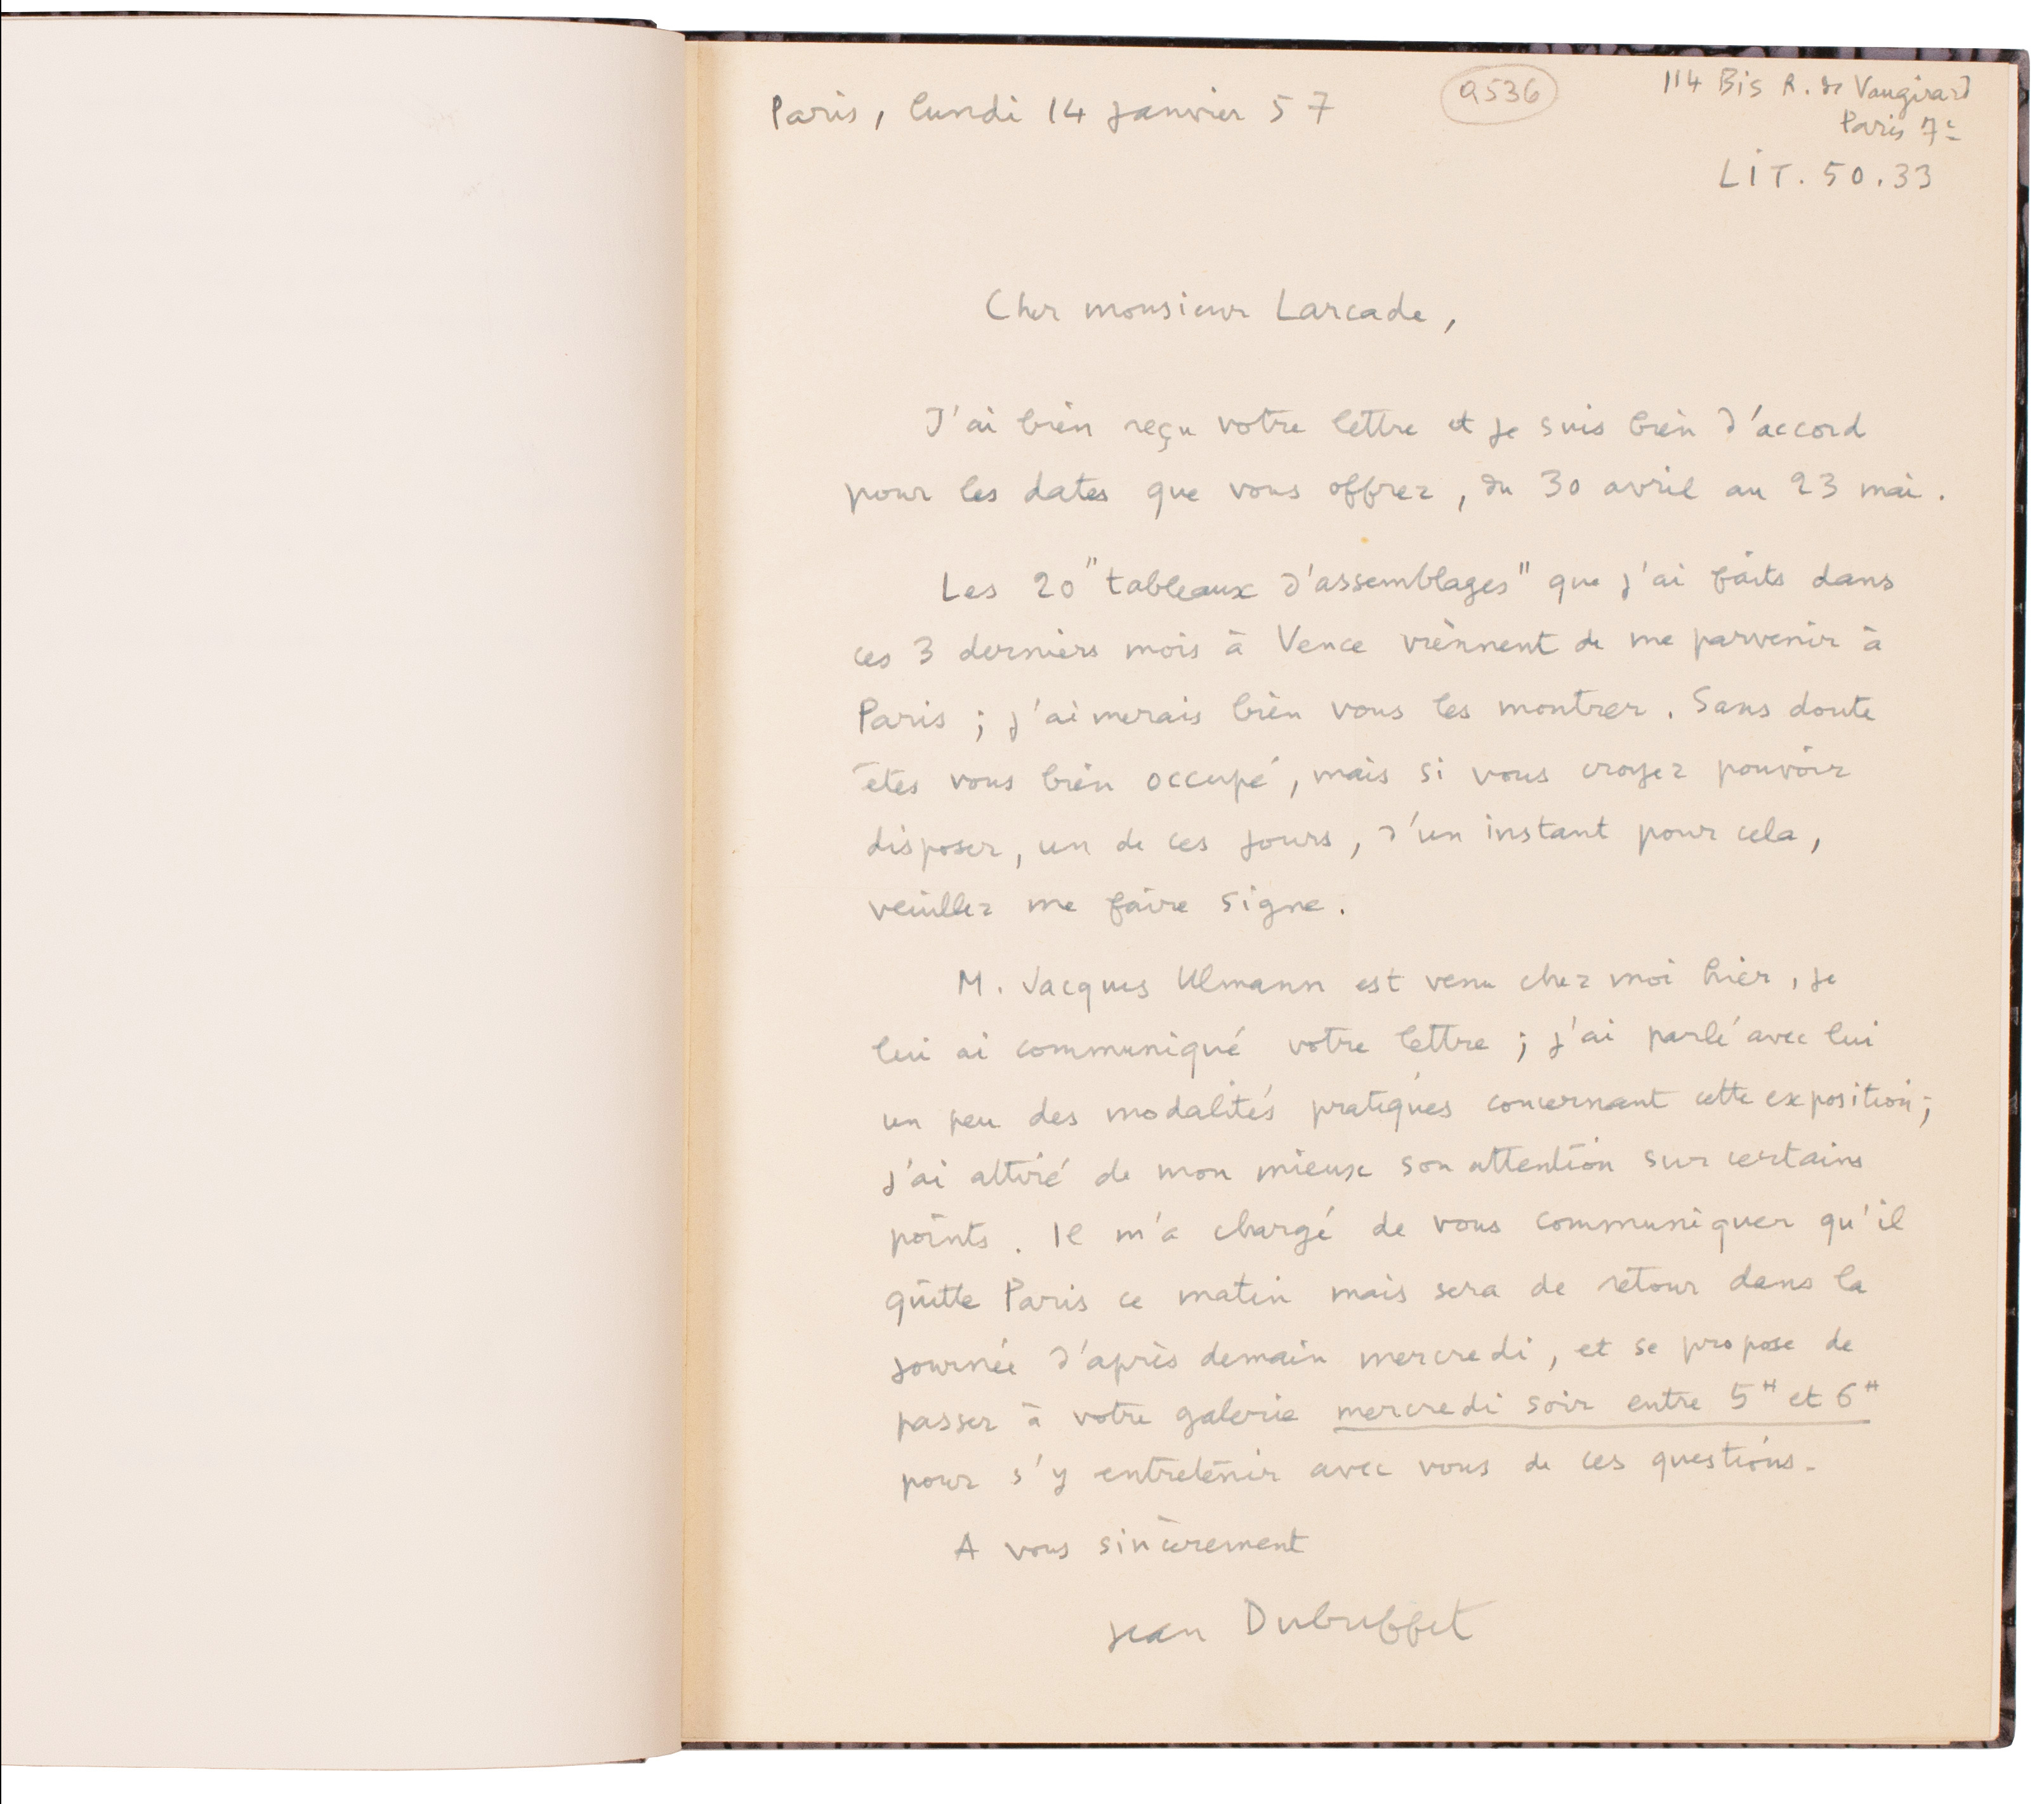 Paris, lundi 14 janvier 57
9536
114 Bis R. de Vaugirard
Paris 7e
LIT. 50.33
Cher monsieur Larcade,
J'ai bien reçu votre lettre et je suis bien d'accord
pour les dates que vous offrez, du 30 avril au 23 mai.
Les 20 "tableaux d'assemblages" que j'ai faits dans
ces 3 derniers mois à Vence viennent de me parvenir à
Paris ; j'aimerais bien vous les montrer. Sans doute
êtes vous bien occupé, mais si vous croyez pouvoir
disposer, un de ces jours, d'un instant pour cela,
veuillez me faire signe.
M. Jacques Ulmann est venu chez moi hier, je
lui ai communiqué votre lettre ; j'ai parlé avec lui
un peu des modalités pratiques concernant cette exposition ;
j'ai attiré de mon mieux son attention sur certains
points. Il m'a chargé de vous communiquer qu'il
quitte Paris ce matin mais sera de retour dans la
journée d'après demain mercredi, et se propose de
passer à votre galerie mercredi soir entre 5H et 6H
pour s'y entretenir avec vous de ces questions.
A vous sincèrement
Jean Dubuffet